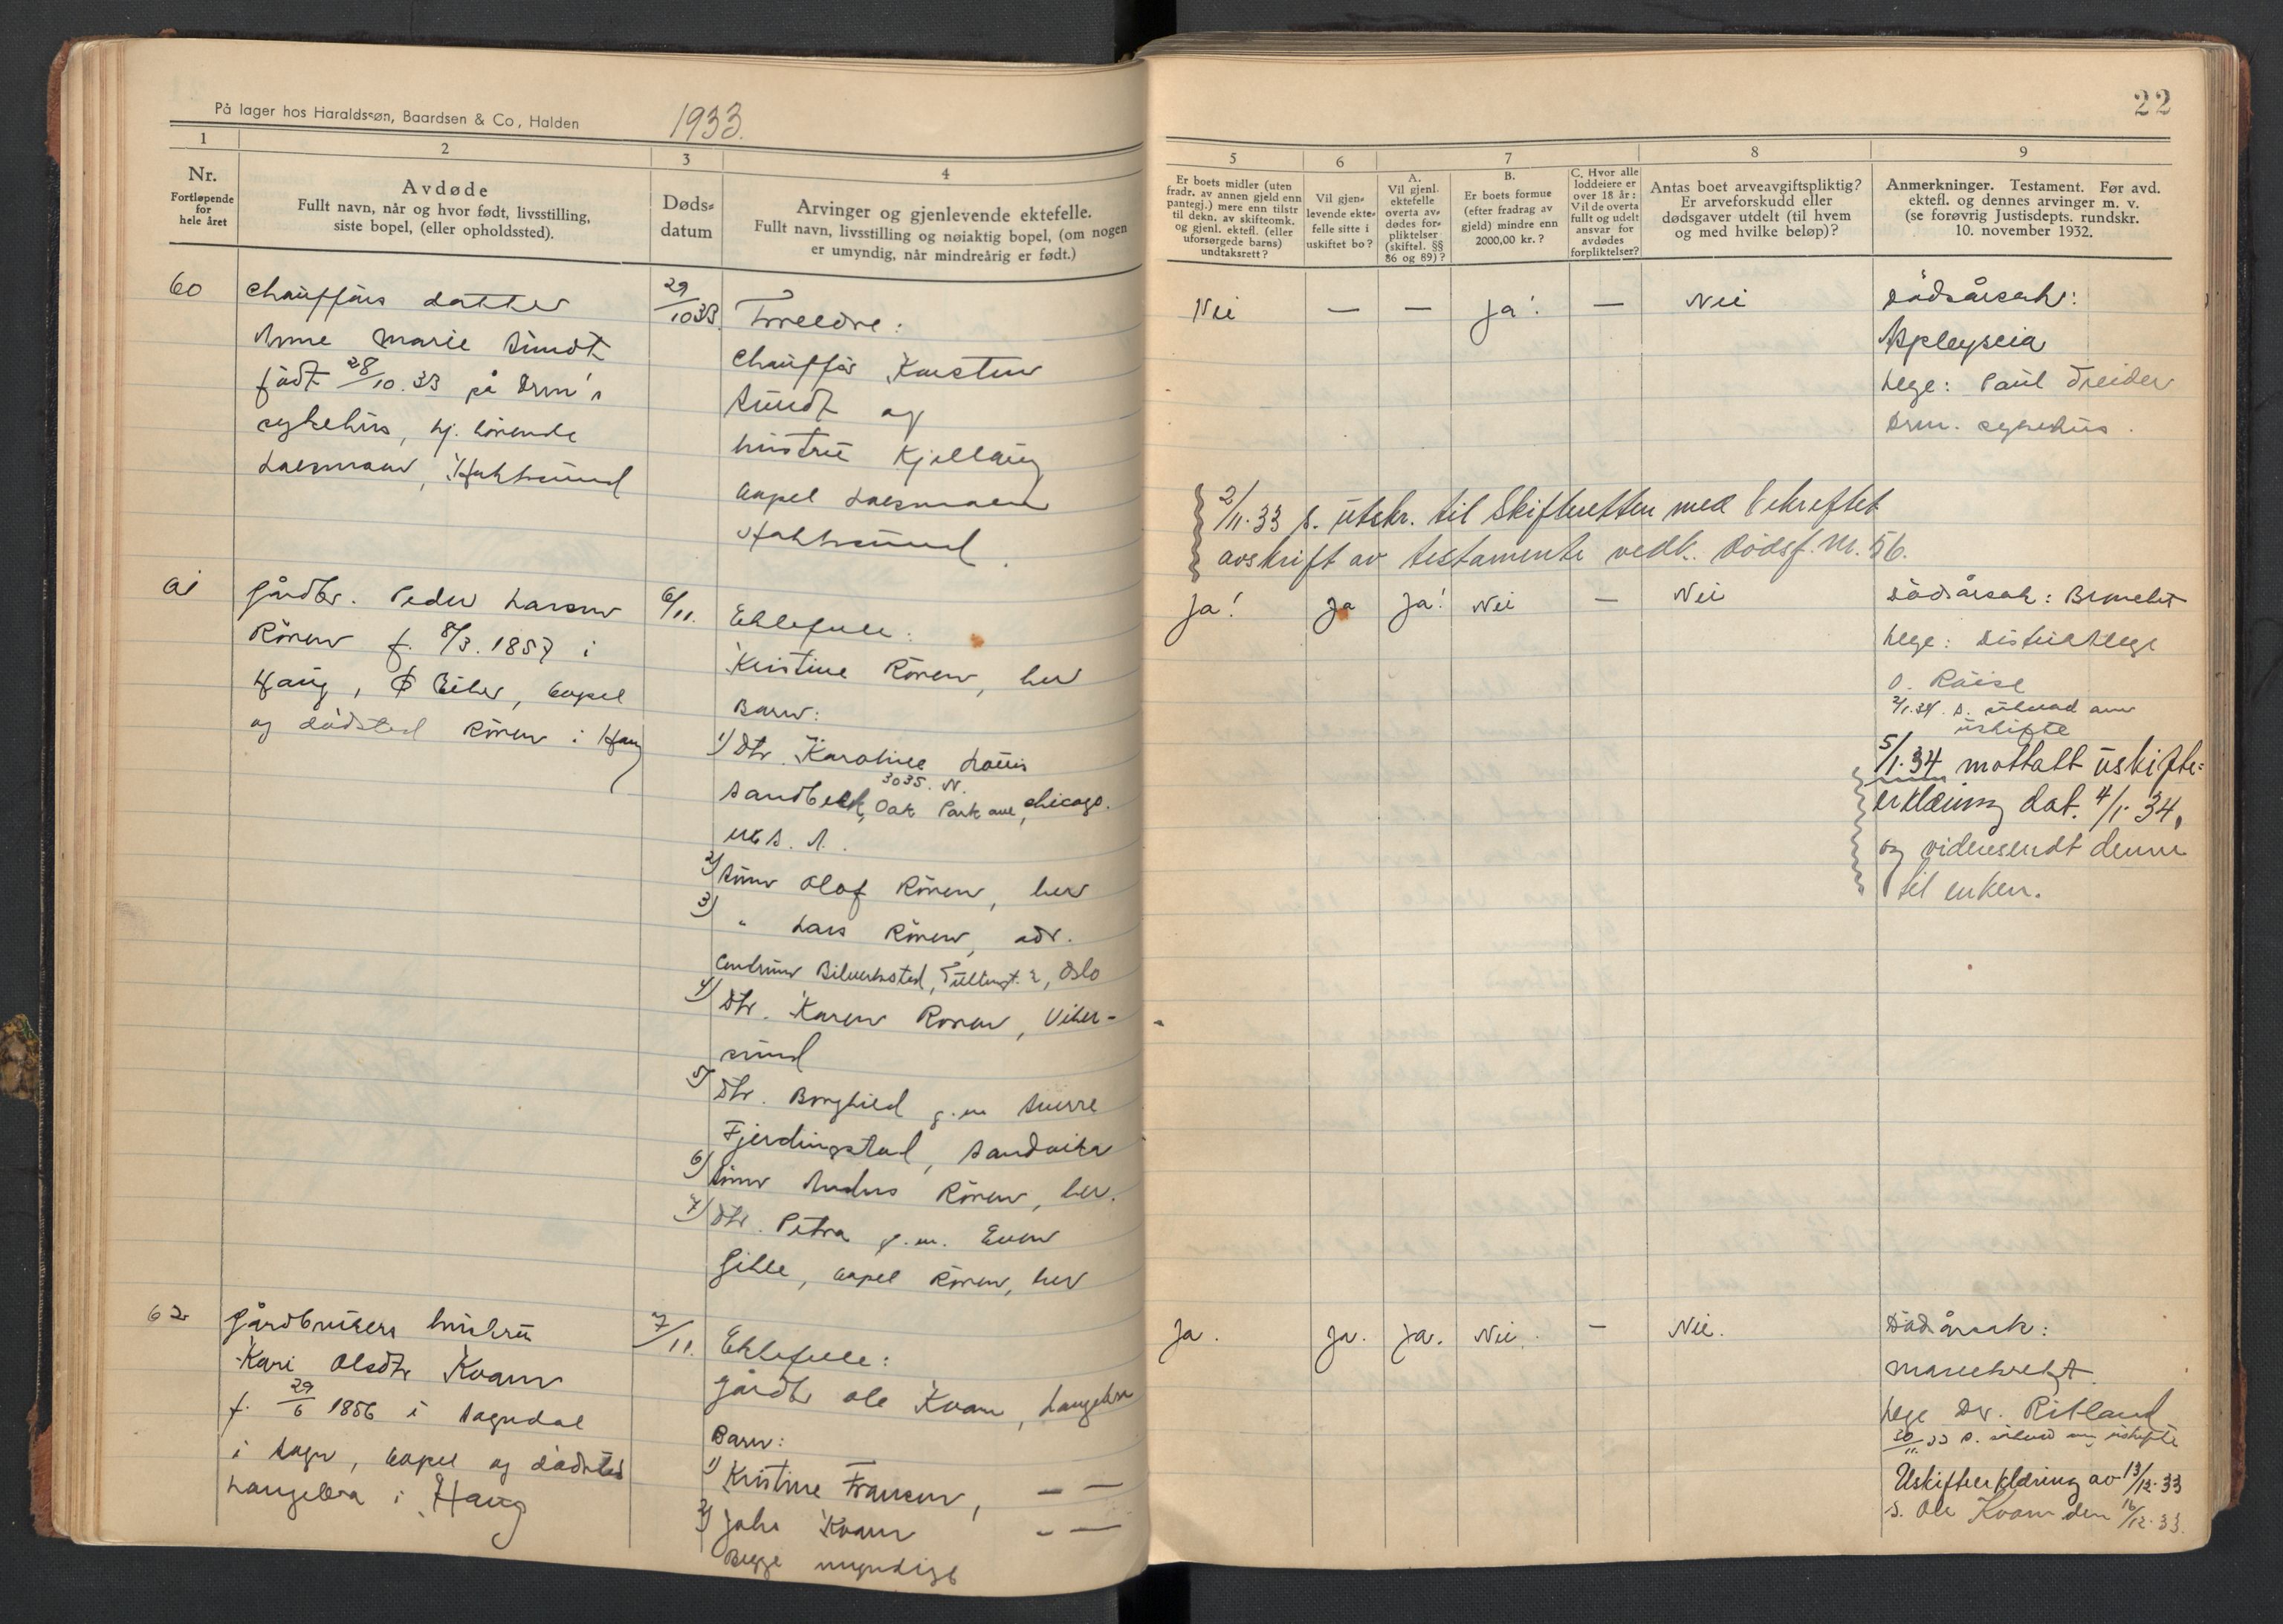 På lager hos Haraldssøn, Baardsen & Co, Halden
1933.
1
2
3
4
Nr.
Fortløpende
for
hele året
Avdøde
Fullt navn, når og hvor født, livsstilling,
siste bopel, (eller opholdssted).
Døds-
datum
Arvinger og gjenlevende ektefelle.
Fullt navn, livsstilling og nøiaktig bopel, (om nogen
er umyndig, når mindreårig er født.)
60
Chaufførs datter
Anne Marie Sundt
født 28/10.33 på Drm's
sykehus, hj. hørende
Loesmoen, Hokksund
29/10 33.
Foreldre:
Chauffør Karsten
Sundt og
hustru Kjellaug
bopel Loesmoen
Hokksund.
61
Gårdbr. Peder Larsen
Røren f. 8/3. 1857 i
Haug, Ø Eiker, bopel
og dødsted Røren i Haug
6/11.
Ektefelle:
Kristine Røren, her
Barn:
1) Dtr. Karoline Louis
3035. N.
Sandbekk, Oak Park ave, Chicago.
U.S.A.
2) Sønn Olaf Røren, her
3) " Lars Røren, adr.
Centrum Bilverksted, Tullinsgt. 2, Oslo
4) Dtr. Karen Røren, Viker-
sund
5) Dtr. Borghild g.m Sverre
Fjerdingstad, Sandvika
6) Sønn Anders Røren, her.
7) Dtr. Petra g.m. Even
Gihle, bopel Røren, her
62
Gårdbrukers hustru
Kari Olsdtr Kvam
f. 29/6 1856 i Sogndal
i Sogn, bopel og dødsted
Langebra i Haug
7/11.
Ektefelle:
Gårdbr Ole Kvam, Langebra
Barn:
1) Kristine Fransen, — —
2) Johs Kvam — —
Begge myndige
22
5
6
7
8
9
Er boets midler (uten
fradr. av annen gjeld enn
pantegj.) mere enn tilstr
til dekn. av skifteomk.
og gjenl. ektefl. (eller
uforsørgede barns)
undtaksrett?
Vil gjen-
levende ekte-
felle sitte i
uskiftet bo?
A.
Vil gjenl.
ektefelle
overta av-
dødes for-
pliktelser
(skiftel. §§
86 og 89)?
B.
Er boets formue
(efter fradrag av
gjeld) mindre enn
2000,00 kr.?
C. Hvor alle
loddeiere er
over 18 år:
Vil de overta
fullt og udelt
ansvar for
avdødes
forpliktelser?
Antas boet arveavgiftspliktig?
Er arveforskudd eller
dødsgaver utdelt (til hvem
og med hvilke beløp)?
Anmerkninger. Testament. Før avd.
ektefl. og dennes arvinger m. v.
(se forøvrig Justisdepts. rundskr.
10. november 1932.
Nei
—
—
Ja!
—
Nei
Dødsårsak:
Aspleyseia
Lege: Paul Treider
Drm. sykehus.
2/11.33 s. utskr. til Skifteretten med bekreftet
avskrift av testamente vedk. Dødsf. Nr. 56.
Ja!
Ja
Ja!
Nei
—
Nei
Dødsårsak:
Lege: Distriktslege
2/1.34. s.
uskifte
5/1.34 mottatt uskifte-
erklæring dat. 4/1.34,
og videresendt denne
til enken.
Ja.
Ja.
Ja.
Nei.
—
Nei.
Dødsårsak:
Mavekreft.
Lege Dr. Ritland
30/11 33 s. uskifte
Uskifteerklæring av 13/12.33
s. Ole Kvam den 16/12.33.